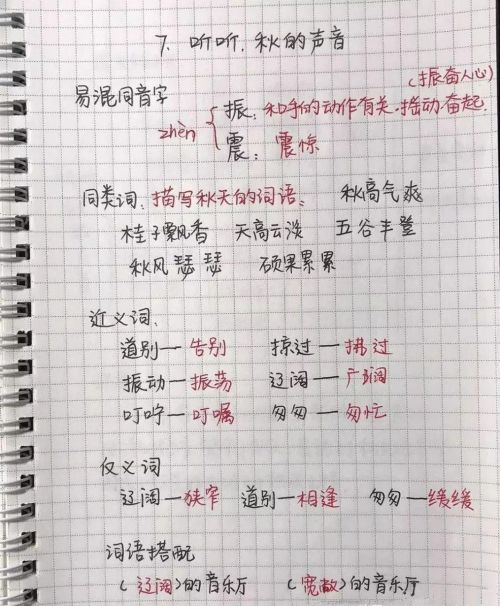 7、听听，秋的声音
(振奋人心)
易混同音字
振：和手的动作有关.摇动.奋起.
zhèn
震：震惊
同类词：描写秋天的词语。 秋高气爽
桂子飘香 天高云淡 五谷丰登
秋风瑟瑟 硕果累累
近义词：
道别—告别 掠过—拂过
振动—振荡 辽阔—广阔
叮咛—叮嘱 匆匆—匆忙
仅义词
辽阔—狭窄 道别—相逢 匆匆—缓缓
词语搭配
(辽阔)的音乐厅 (宽敞)的音乐厅